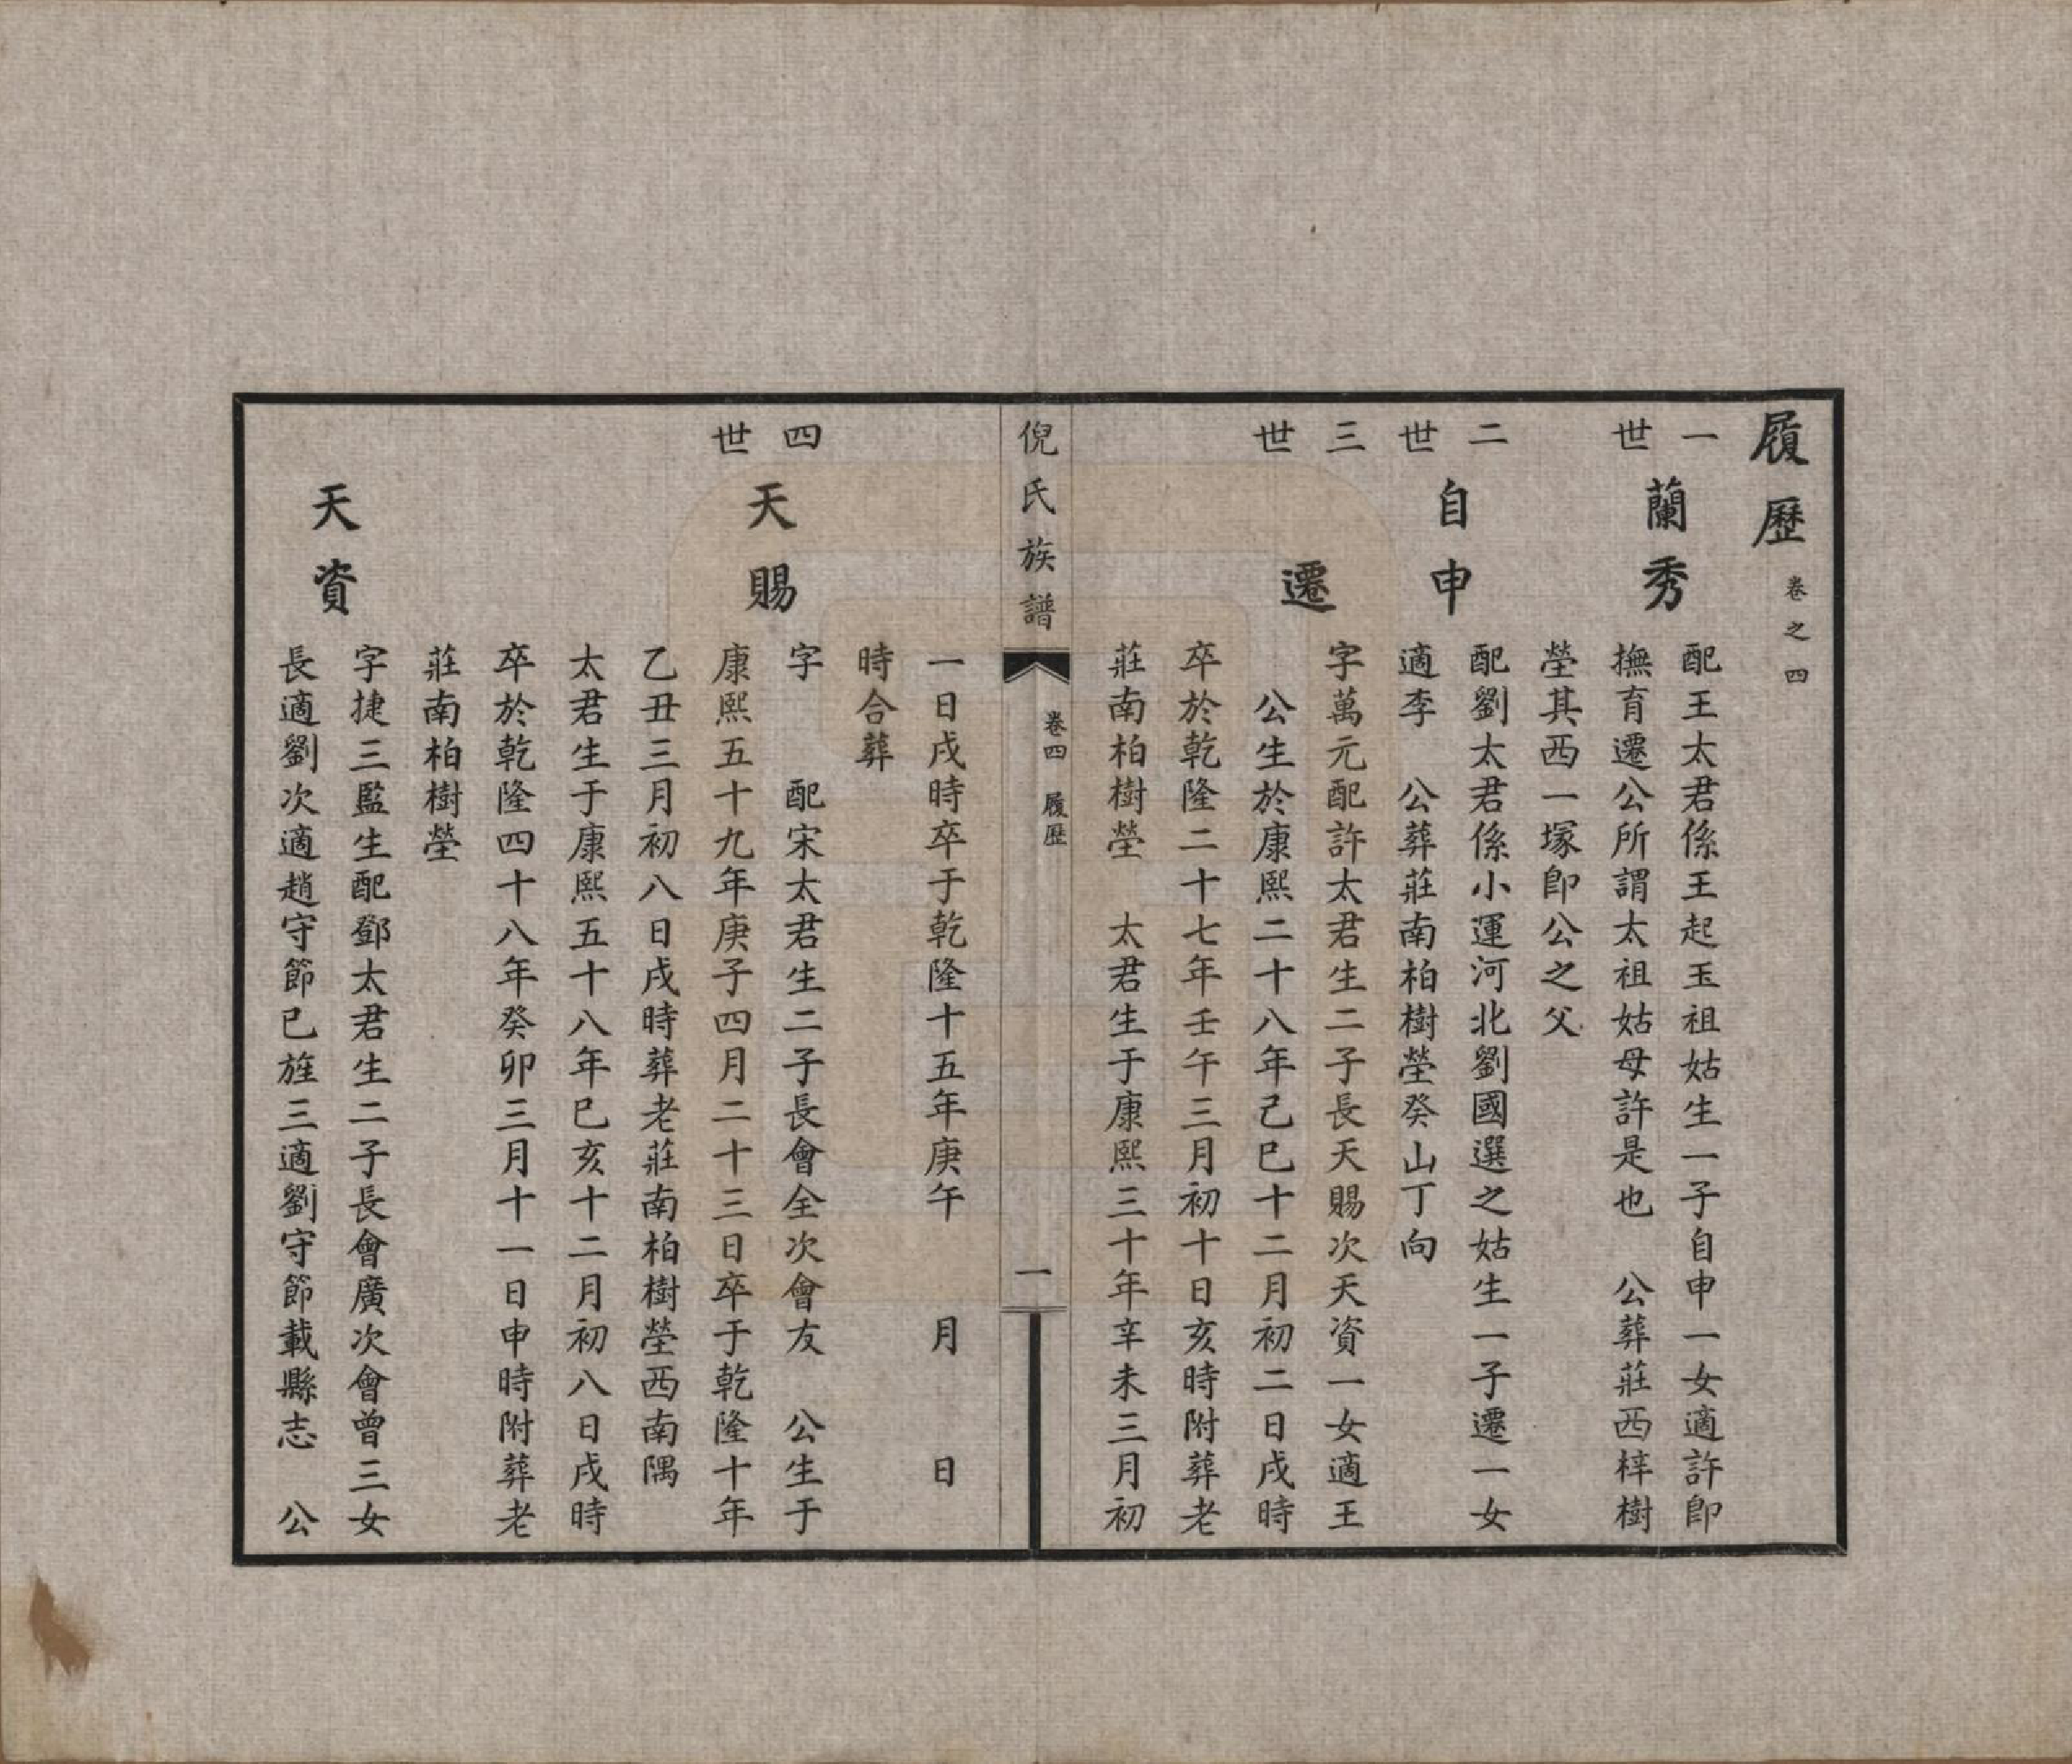 履歷 卷之四
一世
蘭秀
配王太君係王起玉祖姑生一子自申一女適許卽
撫育遷公所謂太祖姑母許是也　公葬莊西梓樹
塋其西一塚卽公之父
二世
自申
配劉太君係小運河北劉國選之姑生一子遷一女
適李　公葬莊南柏樹塋癸山丁向
三世
遷
字萬元配許太君生二子長天賜次天資一女適王
公生於康熙二十八年己巳十二月初二日戌時
卒於乾隆二十七年壬午三月初十日亥時附葬老
莊南柏樹塋　太君生于康熙三十年辛未三月初
倪氏族譜
卷四　履歷
一
一日戌時卒于乾隆十五年庚午　　月　　日
時合葬
四世
天賜
字　　配宋太君生二子長會全次會友　公生于
康熙五十九年庚子四月二十三日卒于乾隆十年
乙丑三月初八日戌時葬老莊南柏樹塋西南隅
太君生于康熙五十八年巳亥十二月初八日戌時
卒於乾隆四十八年癸卯三月十一日申時附葬老
莊南柏樹塋
天資
字捷三監生配鄧太君生二子長會廣次會曾三女
長適劉次適趙守節已旌三適劉守節載縣志　公